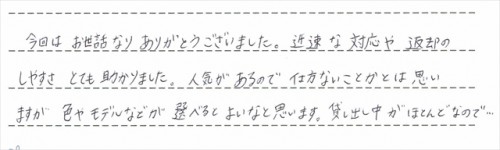 今回は お世話なり ありがとうございました。迅速な対応や 返却の
しやすさ とても助かりました。人気があるので 仕方ないことかとは思い
ますが 色やモデルなどが 選べるとよいなと思います。貸し出し中がほとんどなので…